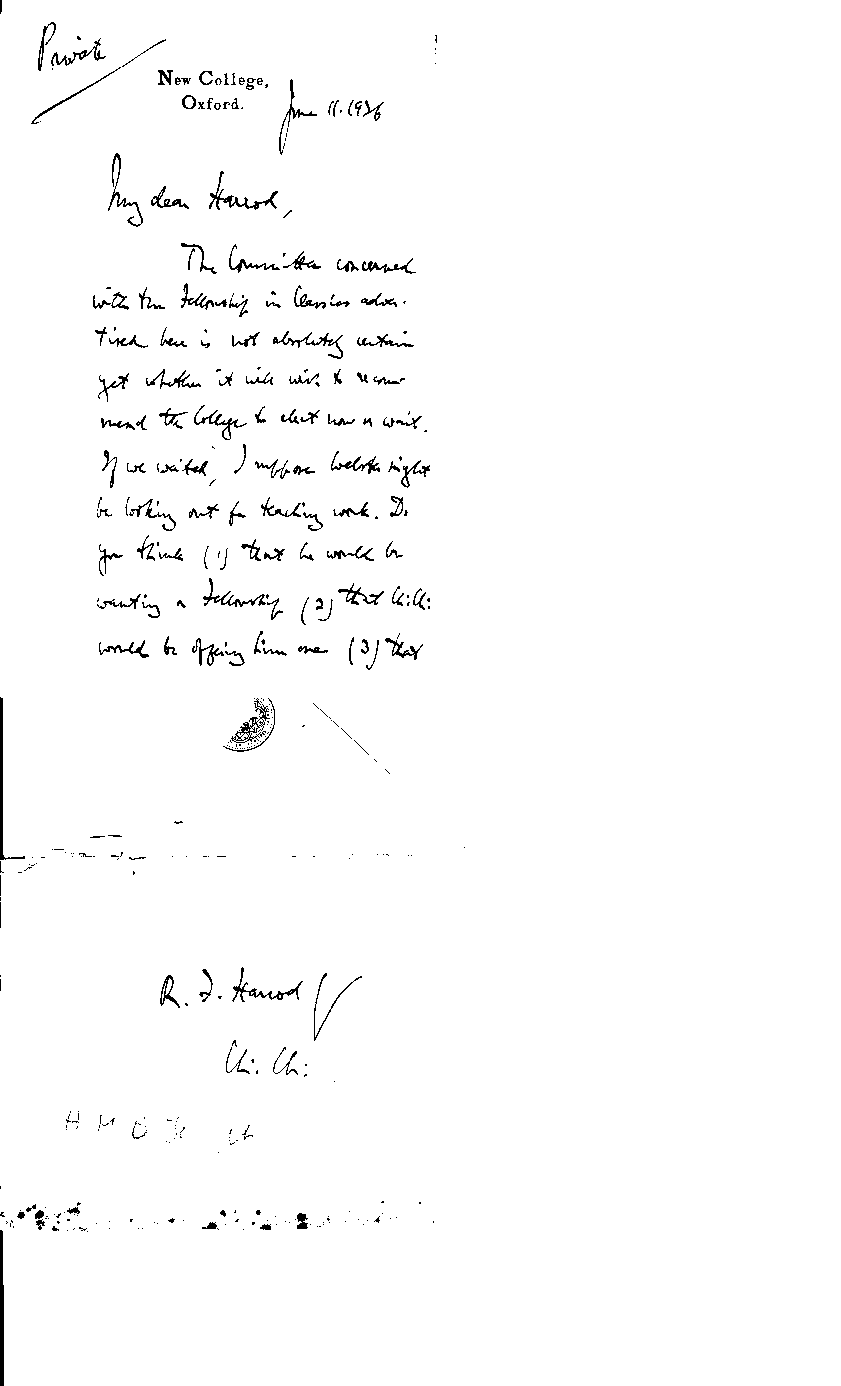 Private
New College,
Oxford.
June 11. 1936
My dear Harrod,
The Committee concerned
with the Fellowship in Classics adver-
tised here is not absolutely certain
yet whether it will wish to recom-
mend the College to elect now or wait.
If we waited, I suppose Webster might
be looking out for teaching work. Do
you think (1) that he would be
wanting a Fellowship (2) that Ch:Ch:
would be offering him one (3) that
R. F. Harrod
Ch: Ch: